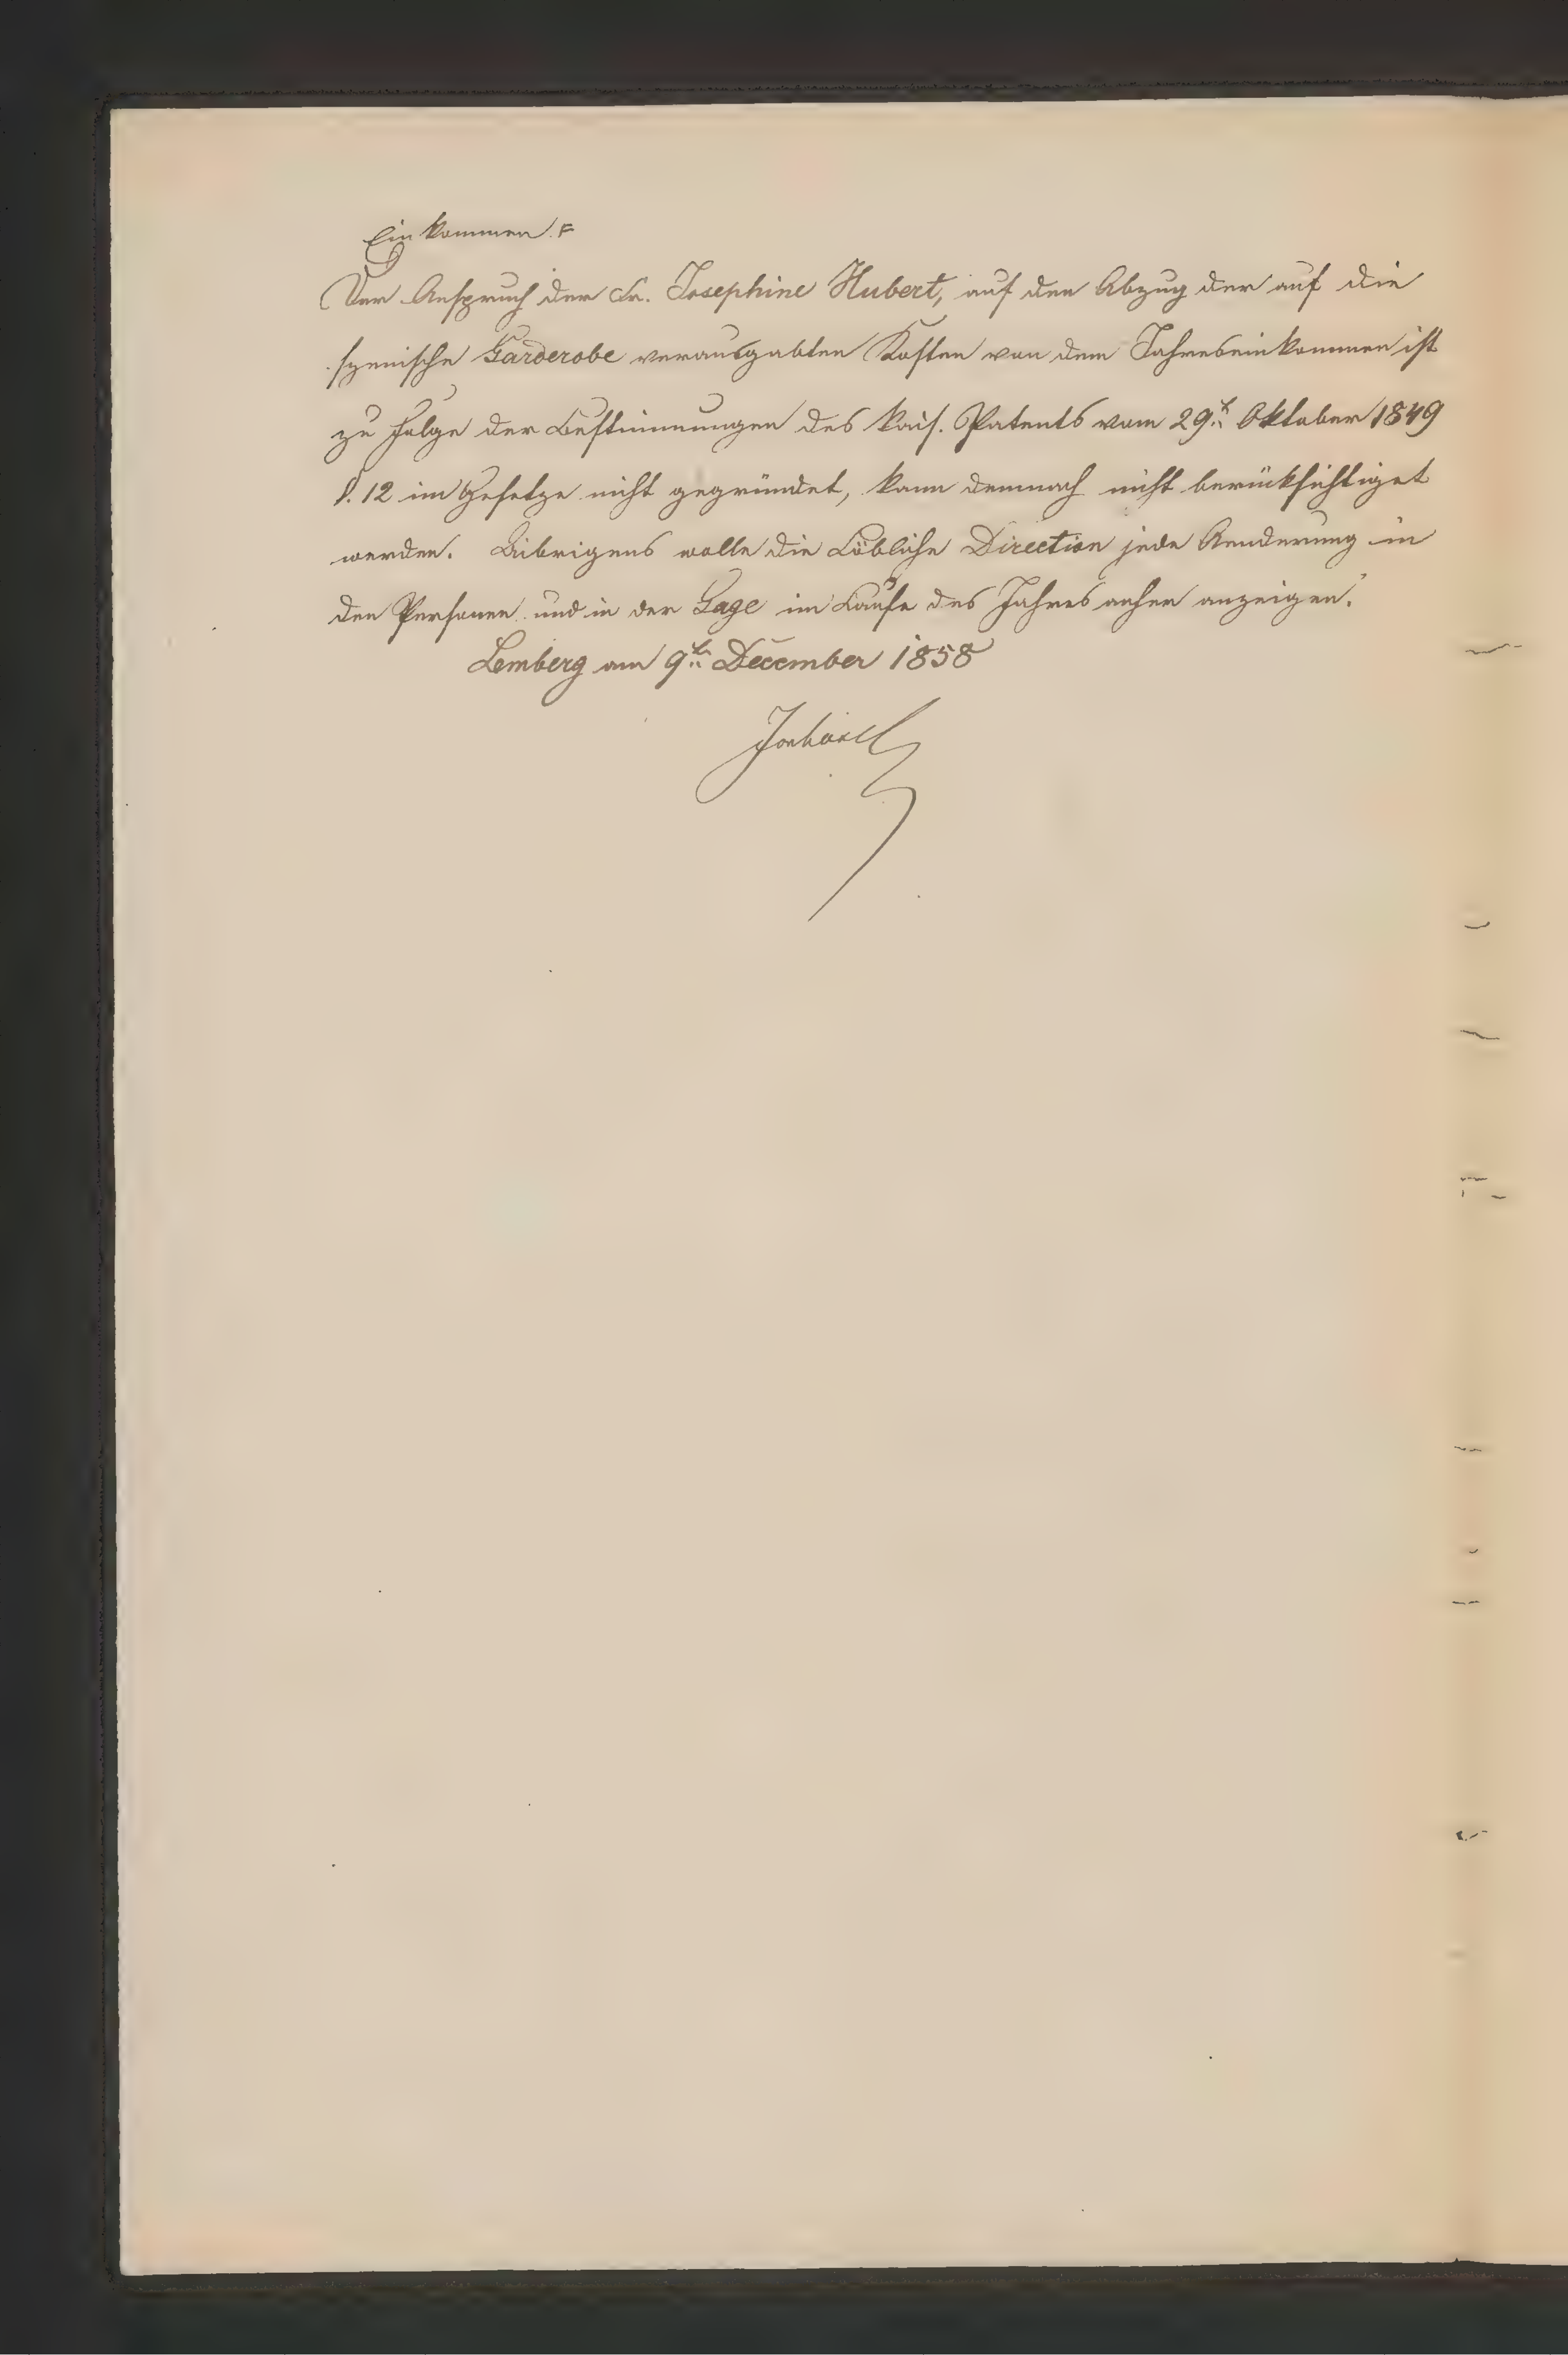 Einkommen.
Der Anspruch der Fr. Josephine Hubert, auf den Abzug der auf die
szenische Garderobe verausgabten Kosten von dem Jahreseinkommen ist
zu Folge der Bestimmungen des kais. Patents vom 29t. Oktober 1849
§. 12 im Gesetze nicht gegründet, kann demnach nicht berücksichtiget
werden. Uibrigens wolle die Löbliche Direction jede Aenderung in
den Personen und in der Gage im Laufe des Jahres anher anzeigen.
Lemberg am 9tn December 1858